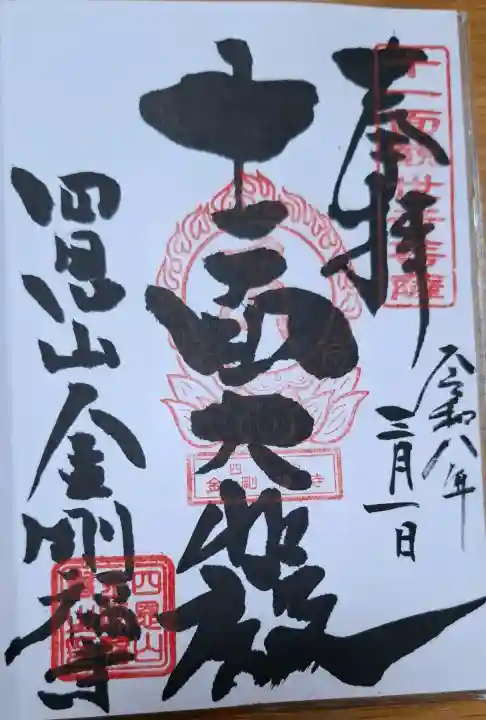 奉拝
十一面観世音菩薩
令和八年
三月一日
十一面大悲殿
四恩山
金剛福寺
四恩山金剛福寺